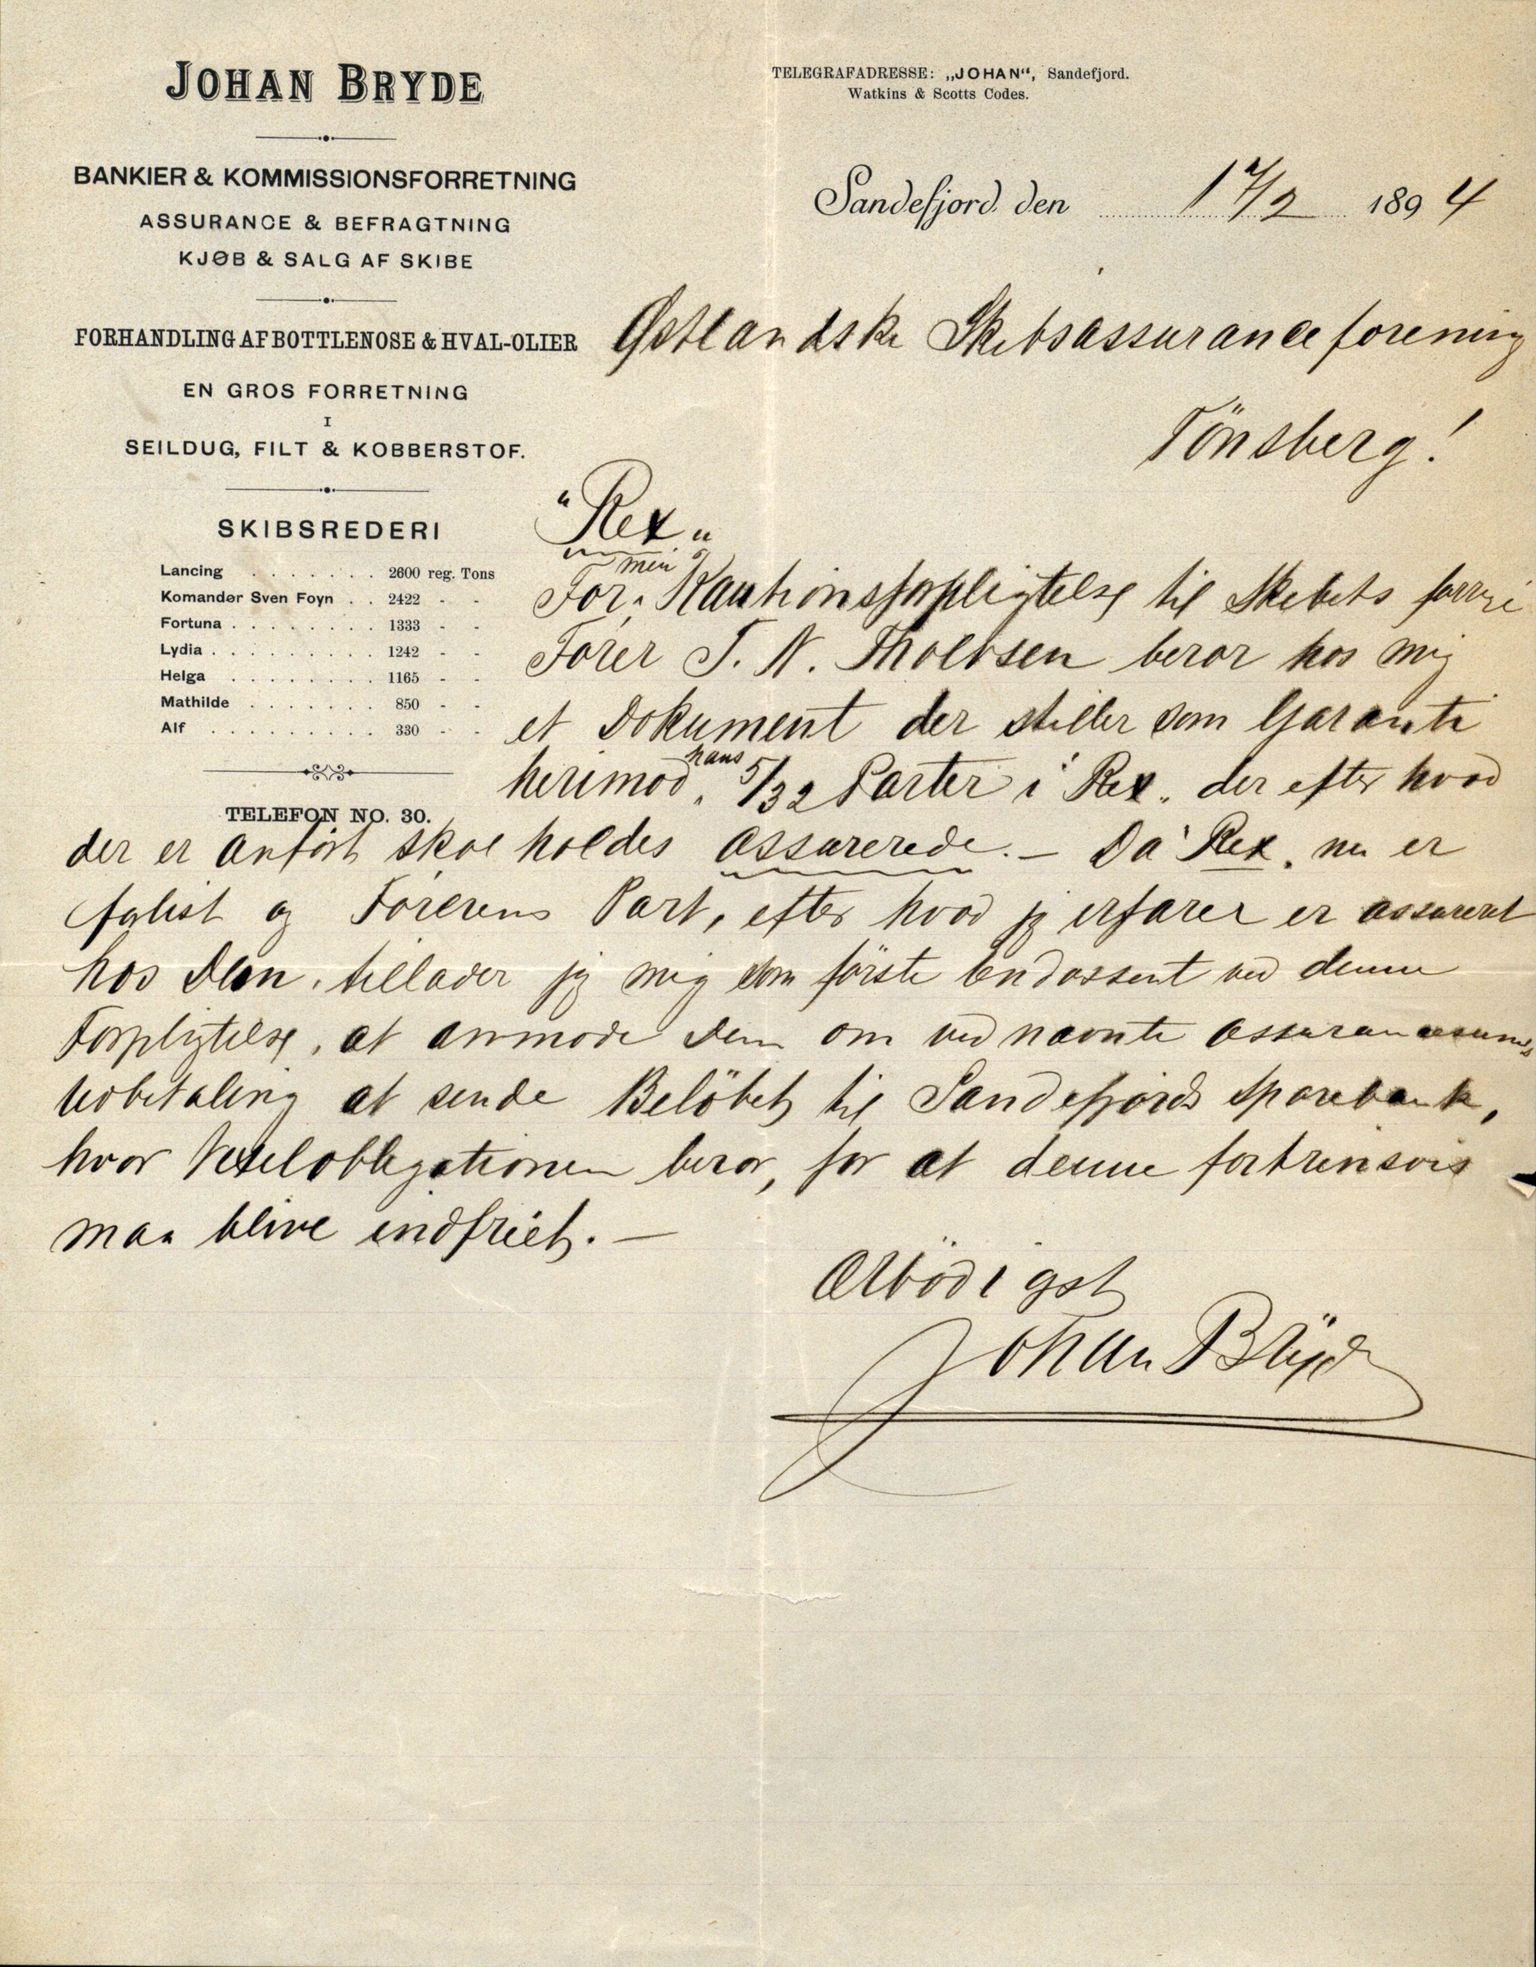 JOHAN BRYDE
BANKIER & KOMMISSIONSFORRETNING
ASSURANCE & BEFRAGTNING
KJØB & SALG AF SKIBE
FORHANDLING AF BOTTLENOSE & HVAL-OLIER
EN GROS FORRETNING
I
SEILDUG, FILT & KOBBERSTOF.
SKIBSREDERI
Lancing . . . . . . . 2600 reg. Tons
Komandør Sven Foyn . . 2422 - -
Fortuna . . . . . . . . 1333 - -
Lydia . . . . . . . . . 1242 - -
Helga . . . . . . . . 1165 - -
Mathilde . . . . . . . 850 - -
Alf . . . . . . . . . 330 - -
TELEFON NO. 30.
TELEGRAFADRESSE: „JOHAN“, Sandefjord.
Watkins & Scotts Codes.
Sandefjord, den 17/2 1894
Østlandske Skibsassuranceforening
Tönsberg!
"Rex"
For min Kautionsforpligtelse til Skibets forrige
Fører T. N. Tholbsen beror hos mig
et Dokument der stiller som Garanti
herimod hans 5/32 Parter i "Rex" der efter hvad
der er anført skal holdes assurerede. — Da "Rex" nu er
forlist og Førerens Part, efter hvad jeg erfarer er assureret
hos Dem, tillader jeg mig som første Endossent ved denne
Forpligtelse, at anmode Dem om ved nævnte Assurancesums
Udbetaling at sende Beløbet til Sandefjords Sparebank,
hvor Vexelobligationen beror, for at denne fortrinsvis
maa blive indfriet. —
Ærbødigst
Johan Bryde